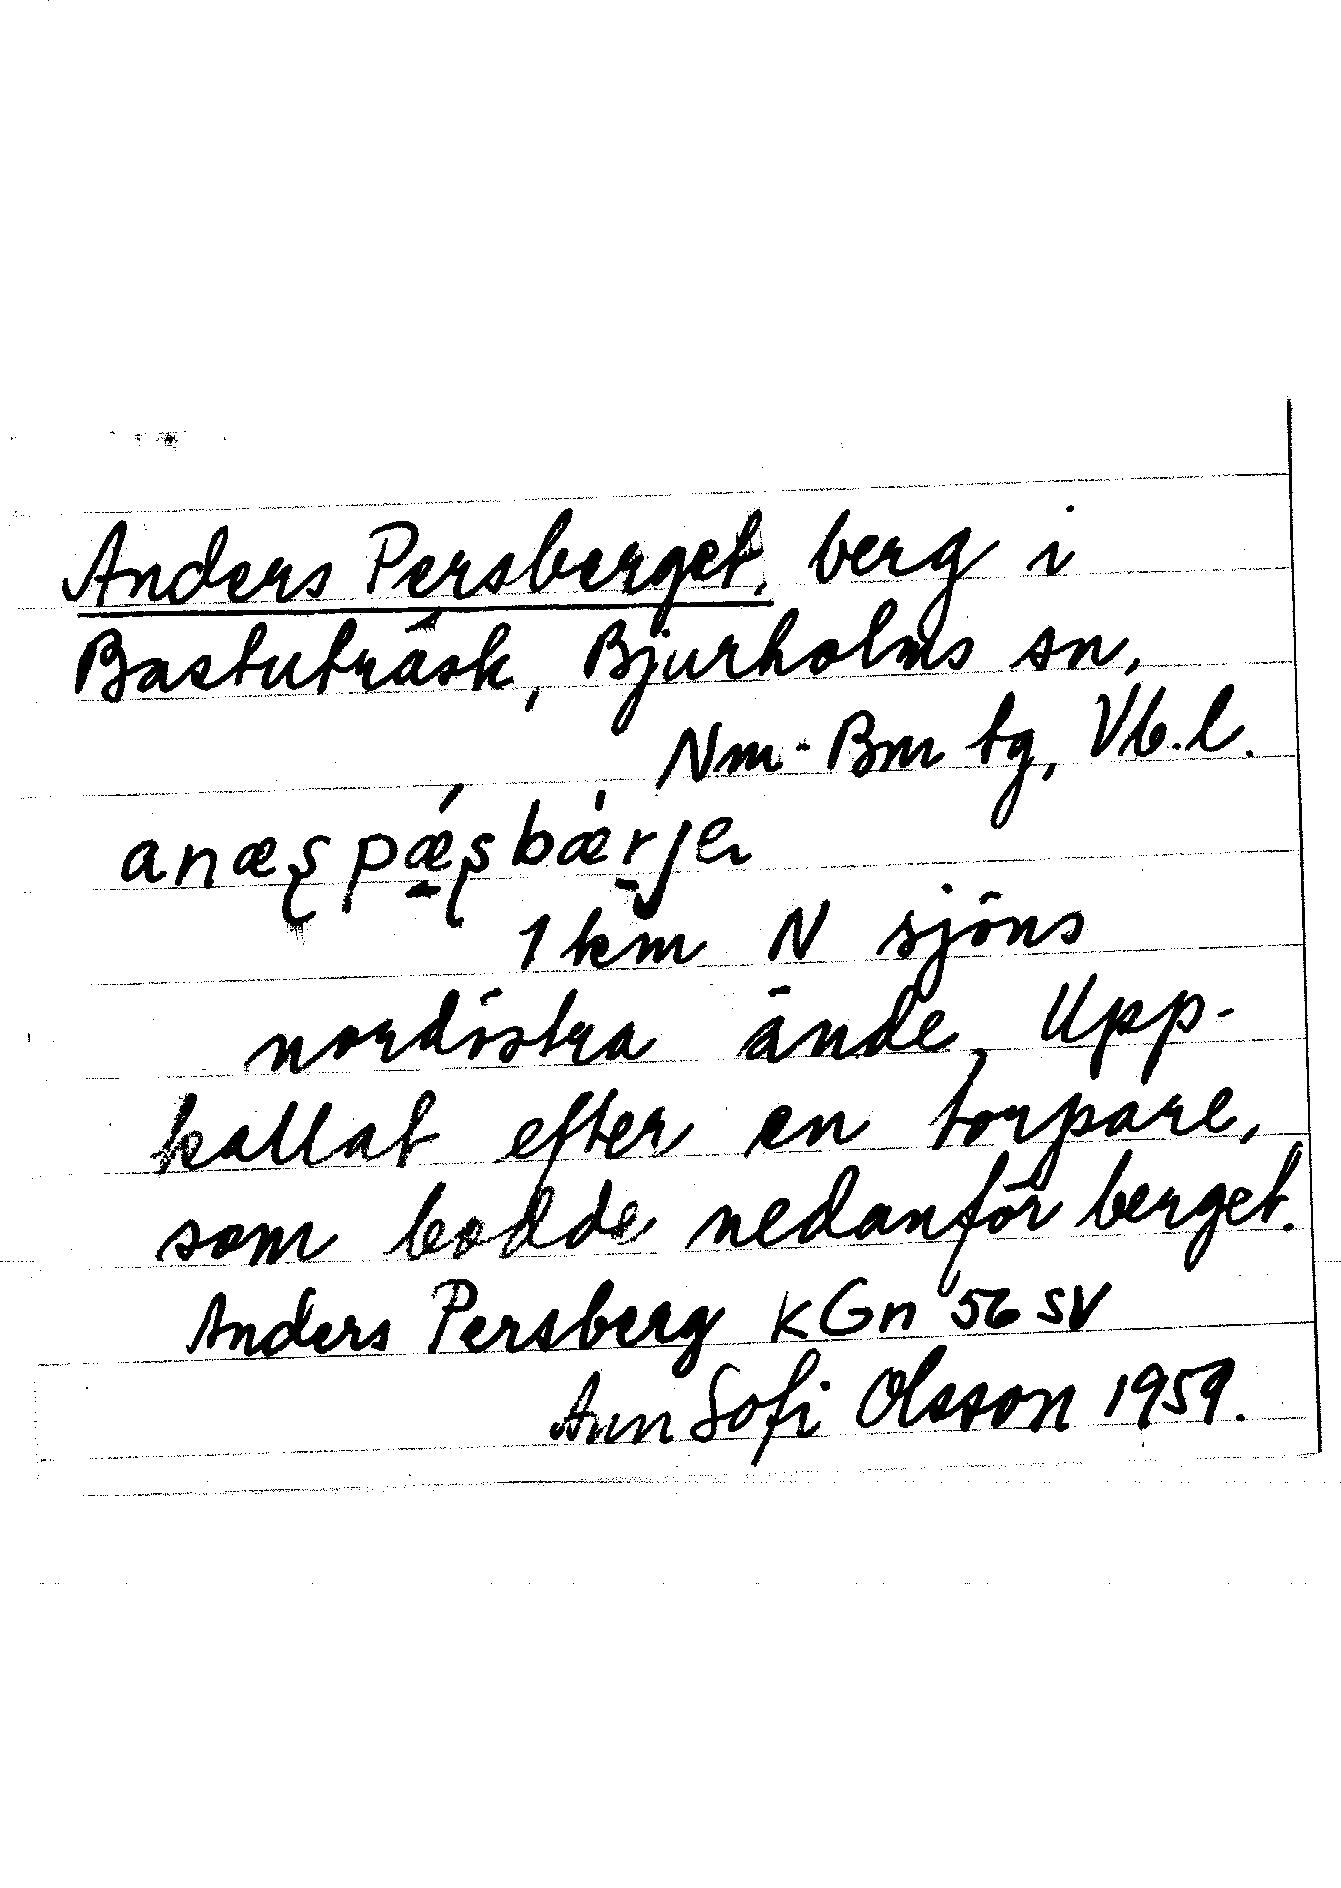 Anders Persberget, berg i
Bastuträsk, Bjurholms sn,
Nm-Bm tg, Vb.l.
anæʂpǽʂbærje
1 km N sjöns
nordöstra ände, Upp-
kallat efter en torpare,
som bodde nedanför berget.
Anders Persberg kGn 56 SV
Ann Sofi Olsson 1959.